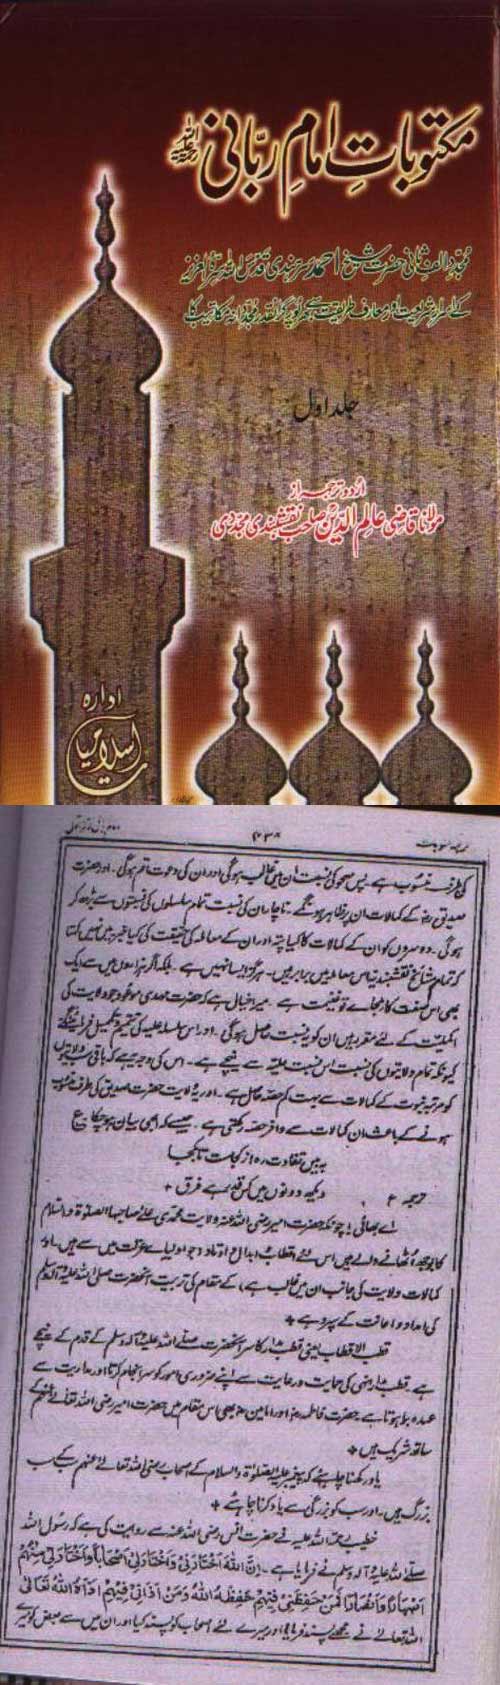 مکتوباتِ امامِ ربّانی رحمۃ اللہ علیہ
مجدد الف ثانی حضرت شیخ احمد سرہندی قدس سرہ
کے اسرارِ شریعت اور معارف طریقت سے بھرپور گرانقدر مجددانہ مکاتیب کا
جلد اول
اُردو ترجمہ از
مولانا قاضی عالم الدین صاحب نقشبندی مجددی
ادارہ
اسلامیات
کی طرف منسوب ہے۔ پس صحو کی نسبت ان میں غالب ہوگی اور ان کی دعوت اتم ہوگی۔ اور حضرت
صدیق رضؓ کے کمالات ان پر ظاہر ہونگے۔ ناچار ان کی نسبت تمام سلسلوں کی نسبتوں سے بڑھ کر
ہوگی۔ دوسروں کو ان کے کمالات کا کیا پتہ اور ان کے معاملہ کی حقیقت کی کیا خبر میں نہیں کہتا
کہ تمام مشائخ نقشبندیہ اس معاملہ میں برابر ہیں۔ ہرگز ایسا نہیں ہے۔ بلکہ اگر ہزاروں میں سے ایک
بھی اس صفت کا مِل جائے تو غنیمت ہے۔ میرا خیال ہے کہ حضرت مہدی موعود جو ولایت کی
اکملیت کے لئے مقرر ہیں ان کو یہ نسبت حاصل ہوگی۔ اور اس سلسلہ علیہ کی تتمیم و تکمیل فرمائینگے
کیونکہ تمام ولایتوں کی نسبت اس نسبت علیہ سے نیچے ہے۔ اس کی وجہ یہ ہے کہ باقی سب ولایتوں
کو مرتبہ نبوت کے کمالات سے بہت کم حصہ حاصل ہے۔ اور یہ ولایت حضرت صدیق کی طرف منسوب
ہونے کے باعث ان کمالات سے وافر حصہ رکھتی ہے۔ جیسے کہ ابھی بیان ہوچکا ع
بہ بیں تفاوت رہ از کجاست تا بکجا
ترجمہ ع دیکھ دونوں میں کس قدر ہے فرق
اے بھائی! چونکہ حضرت امیر رضی اللہ عنہ ولایت محمدی علےٰ صاحبہا الصلوٰۃ والسلام
کا بوجھ اُٹھانے والے ہیں اس لئے اقطاب و ابدال و اوتاد (جو اولیائے عزلت میں سے ہیں۔ اور
کمالات ولایت کی جانب ان میں غالب ہے) کے مقام کی تربیت آنحضرت صلی اللہ علیہ وآلہ وسلم
کی امداد و اعانت کے سپرد ہے
قطب الاقطاب یعنی قطب مدار کا سر آنحضرت صلے اللہ علیہ وآلہ وسلم کے قدم کے نیچے
ہے۔ قطب مدار انہی کی حمایت و رعایت سے اپنے ضروری امور کو سرانجام کرتا اور مداریت سے
عہدہ برا ہوتا ہے حضرت فاطمہ رضؓ اور امامین رضؓ بھی اس مقام میں حضرت امیر رضی اللہ تعالےٰ عنہم کے
ساتھ شریک ہیں
یاد رکھنا چاہئے کہ پیغمبر علیہ الصلوٰۃ والسلام کے اصحاب رضی اللہ تعالےٰ عنہم سب کے سب
بزرگ ہیں۔ اور سب کو بزرگی سے یاد کرنا چاہئے
خطیب رحمۃ اللہ علیہ نے حضرت انس رضی اللہ عنہ سے روایت کی ہے کہ رسول اللہ
صلے اللہ علیہ وآلہ وسلم نے فرمایا ہے۔ اِنَّ اللّٰهَ اخْتَارَنِیْ وَاخْتَارَلِیْ اَصْحَابًا وَاخْتَارَلِیْ مِنْهُمْ
اَصْهَارًا وَاَنْصَارًا فَمَنْ حَفِظَنِیْ فِیْهِمْ حَفِظَهُ اللّٰهُ وَمَنْ اٰذَانِیْ فِیْهِمْ اٰذَاهُ اللّٰهُ تَعَالٰی
اللہ تعالےٰ نے مجھے پسند فرمایا اور میرے لئے اصحاب کو پسند کیا اور ان میں سے بعض کو میرے